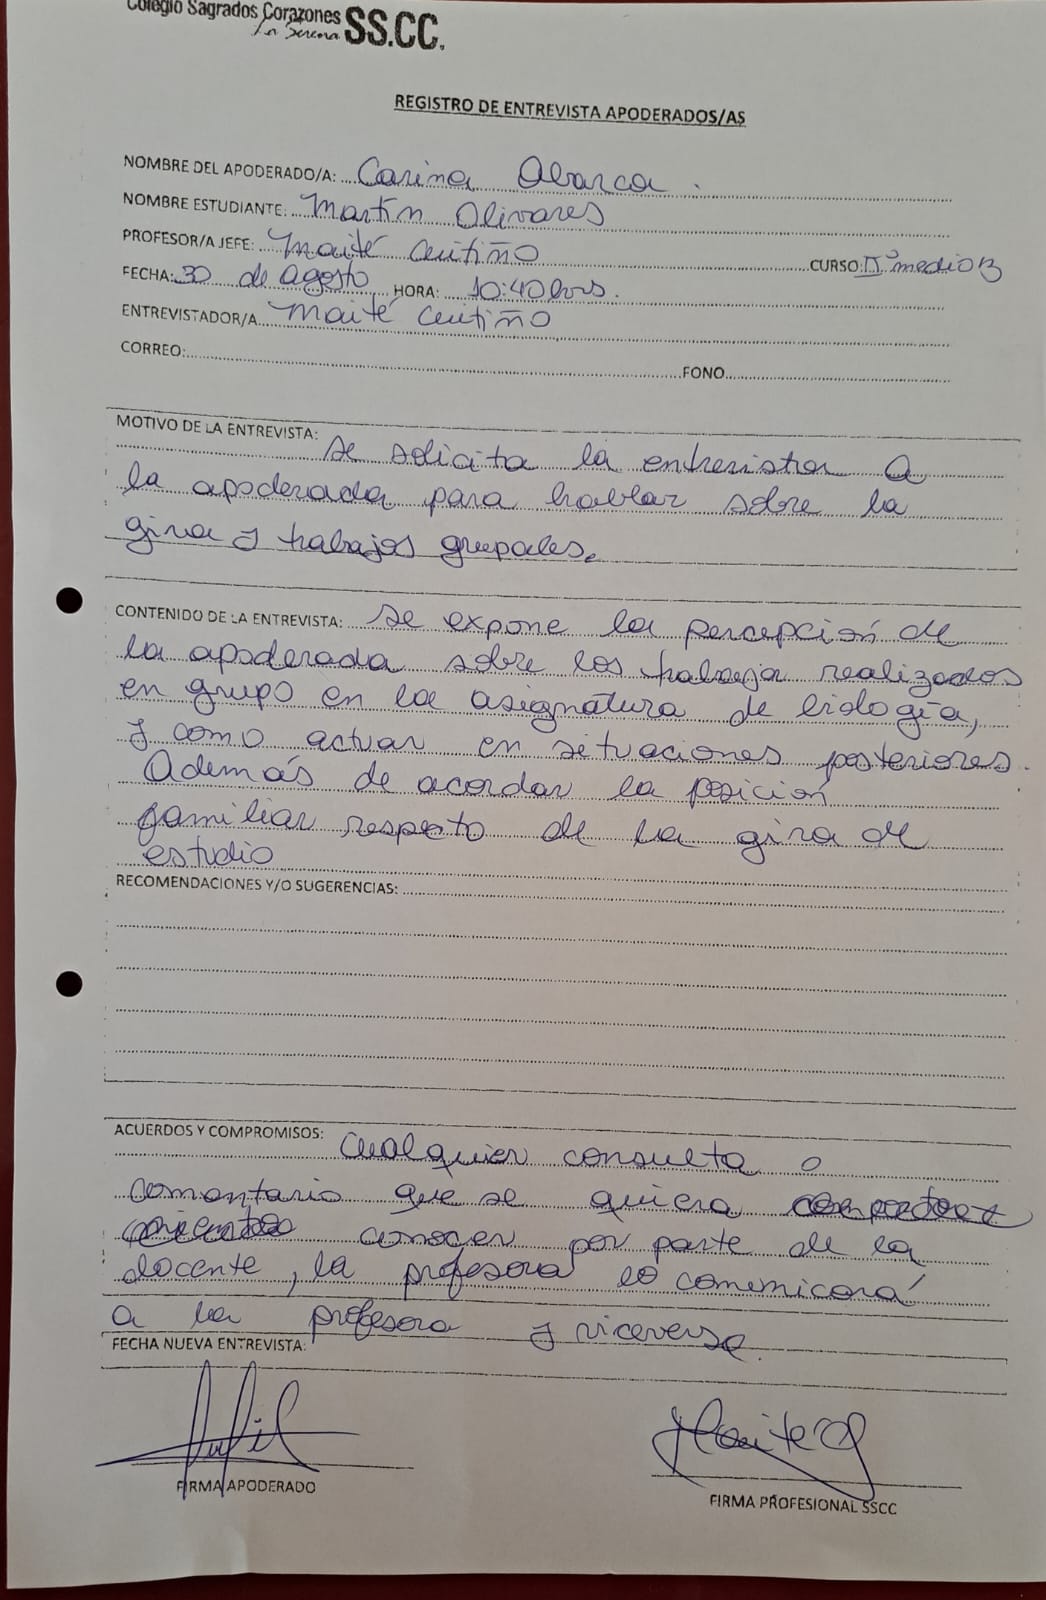 Colegio Sagrados Corazones
La Serena SS.CC.
REGISTRO DE ENTREVISTA APODERADOS/AS
NOMBRE DEL APODERADO/A: Carina Abarca.
NOMBRE ESTUDIANTE: Martín Olivares
PROFESOR/A JEFE: Maité Ceutiño CURSO: IIº medio B
FECHA: 30 de agosto HORA: 10:40 hrs.
ENTREVISTADOR/A Maité Ceutiño
CORREO: FONO
MOTIVO DE LA ENTREVISTA: Se solicita la entrevista a
la apoderada para hablar sobre la
gira y trabajos grupales.
CONTENIDO DE LA ENTREVISTA: Se expone la percepción de
la apoderada sobre los trabaja realizados
en grupo en la asignatura de biología,
y como actuar en situaciones posteriores.
Además de acordar la posición
familiar respecto de la gira de
estudio
RECOMENDACIONES Y/O SUGERENCIAS:
ACUERDOS Y COMPROMISOS: Cualquier consulta o
comentario que se quiera
conocer por parte de la
docente, la profesora lo comunicará
a la profesora y viceversa.
FECHA NUEVA ENTREVISTA:
FIRMA APODERADO
FIRMA PROFESIONAL SSCC